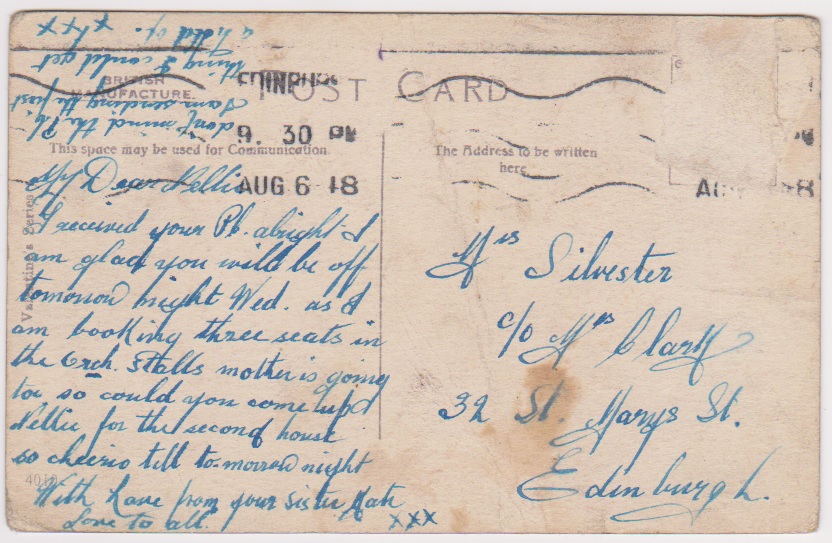 POST CARD
BRITISH
MANUFACTURE.
EDINBURGH
9. 30 PM
AUG 6 18
This space may be used for Communication
The Address to be written
here
Valentine's Series
4010
My Dear Nellie
I received your Pc. alright I
am glad you will be off
tomorrow night Wed. as I
am booking three seats in
the Orch. Stalls mother is going
too so could you come up
Nellie for the second house
so cheerio till to-morrow night
With Love from your Sister Kate
Love to all. xxx
don't mind the Pc.
I am sending the first
thing I could get
a hold of. xxxx
Mrs Silvester
c/o Mrs Clark
32 St. Marys St.
Edinburgh.